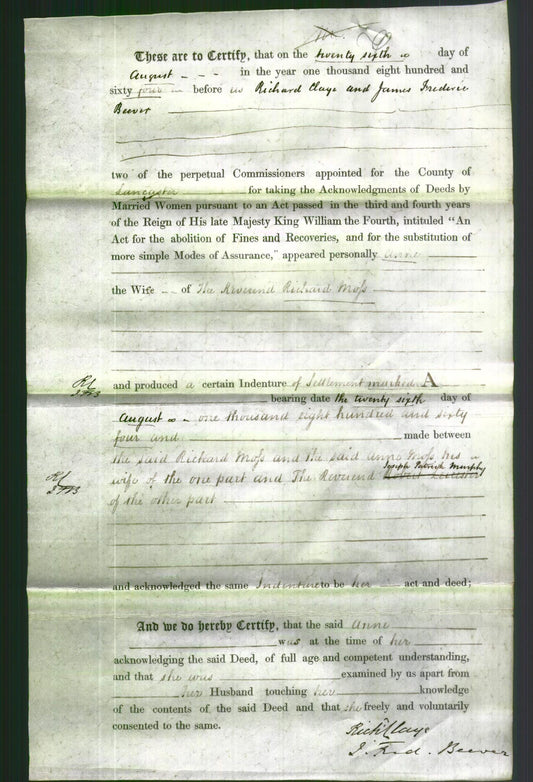 These are to Certify, that on the twenty sixth day of
August in the year one thousand eight hundred and
sixty four before us Richard Claye and James Frederic
Beever
two of the perpetual Commissioners appointed for the County of
Lancaster for taking the Acknowledgments of Deeds by
Married Women pursuant to an Act passed in the third and fourth years
of the Reign of His late Majesty King William the Fourth, intituled "An
Act for the abolition of Fines and Recoveries, and for the substitution of
more simple Modes of Assurance," appeared personally Anne
the Wife of The Reverend Richard Moss
and produced a certain Indenture of Settlement marked A
bearing date the twenty sixth day of
August one thousand eight hundred and sixty
four and made between
the said Richard Moss and the said Anne Moss his
wife of the one part and The Reverend Joseph Patrick Murphy
of the other part
and acknowledged the same Indenture to be her act and deed;
And we do hereby Certify, that the said Anne
was at the time of her
acknowledging the said Deed, of full age and competent understanding,
and that she was examined by us apart from
her Husband touching her knowledge
of the contents of the said Deed and that she freely and voluntarily
consented to the same.
Richd Claye
J. Fred. Beever